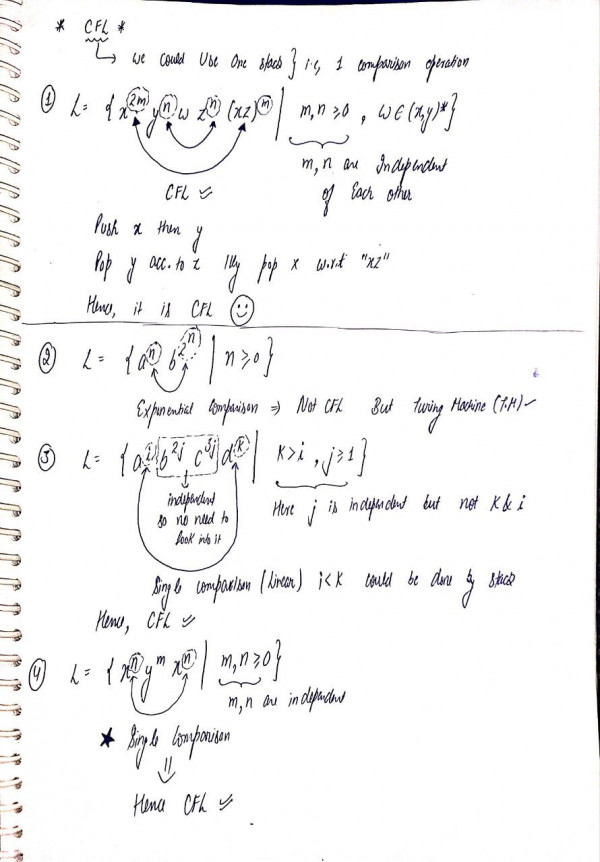 * CFL *
we could Use One stack } i.e, 1 comparison operation
① L = { x^2m y^n w z^n (xz)^m | m,n ≥ 0 , w ∈ (x,y)* }
m,n are Independent
of Each other
CFL ✓
Push x then y
Pop y acc. to z lly pop x w.r.t "xz"
Hence, it is CFL ☺
② L = { a^n b^2^n | n ≥ 0 }
Exponential Comparison ⇒ Not CFL But Turing Machine (T.M) ✓
③ L = { a^i b^2j c^3j d^k | k > i , j ≥ 1 }
independent
so no need to
look into it
Here j is independent but not k & i
Single comparison (Linear) i < k could be done by stack
Hence, CFL ✓
④ L = { x^n y^m x^n | m,n ≥ 0 }
m,n are independent
★ Single Comparison
⇓
Hence CFL ✓